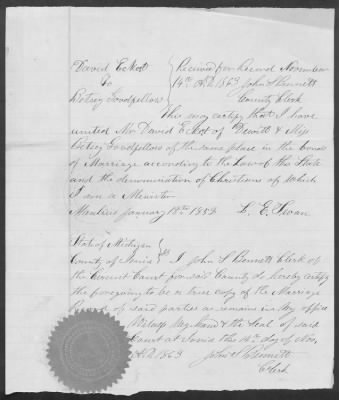 David Eckert } Received for Record November
to 14th A.D. 1863 John S Bennett
Betsey Goodfellow County Clerk
This may certify that I have
united Mr David Eckert of Dewitt & Miss
Betsey Goodfellow of the same place in the bonds
of Marriage according to the Law of this State
and the denomination of Christians of Which
I am a Minister
January 18th 1852 L. E. Sloan
State of Michigan }
County of Ionia } SS I John S Bennett Clerk of
the Circuit Court for said County do hereby certify
the foregoing to be a true copy of the Marriage
Record of said parties as remains in My office
Witness My Hand & the Seal of said
Court at Ionia the 14th day of Nov
A.D. 1863 John S Bennett
Clerk